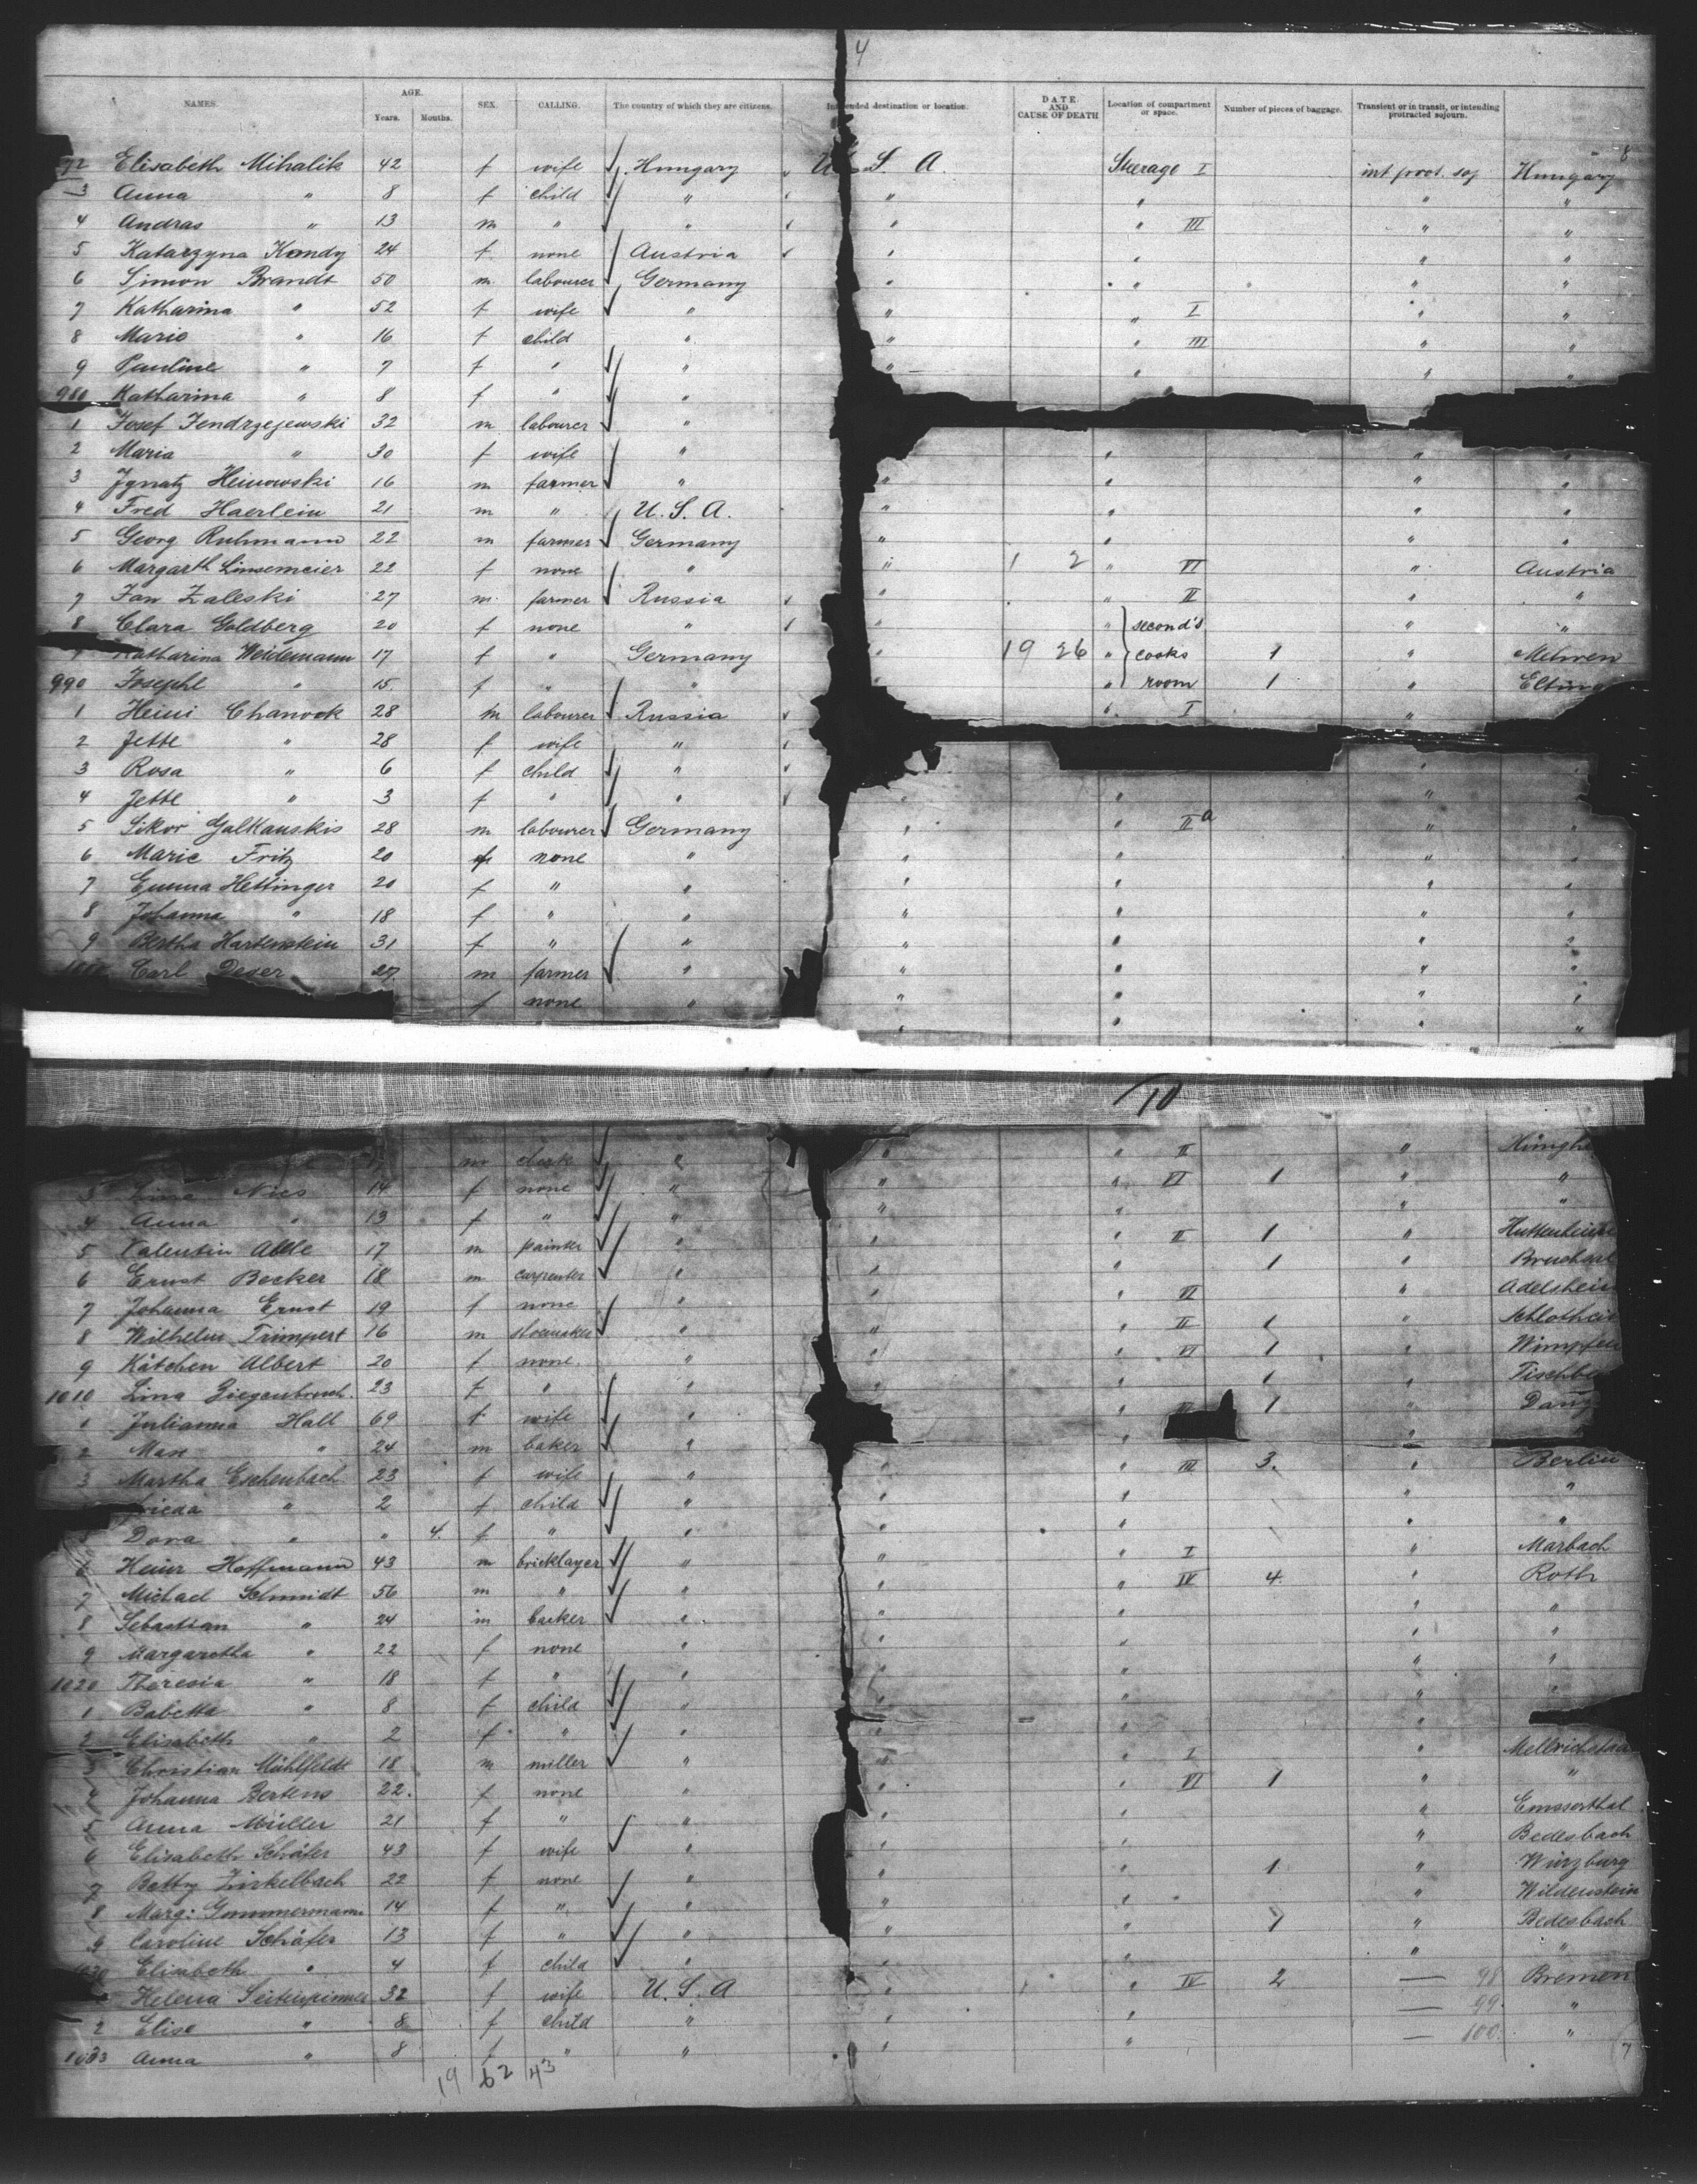 4
NAMES. AGE. Years. Months. SEX. CALLING. The country of which they are citizens. Intended destination or location. DATE AND CAUSE OF DEATH Location of compartment or space. Number of pieces of baggage. Transient or in transit, or intending protracted sojourn.
8
72 Elisabeth Mihalik 42 f wife Hungary U. S. A. Steerage I int prot. soj Hungary
3 Anna " 8 f child " " " " "
4 Andras " 13 m " " " " III " "
5 Katarzyna Kandy 24 f. none Austria " " " "
6 Simon Brandt 50 m. labourer Germany " " " "
7 Katharina " 52 f wife " " " I " "
8 Marie " 16 f child " " " III " "
9 Pauline " 7 f " " " " " "
980 Katharina " 8 f " "
1 Josef Jendrzejewski 32 m labourer "
2 Maria " 30 f wife " " " "
3 Ignatz 16 m farmer " " " " "
4 Fred Haerlein 21 m " U. S. A. " " " "
5 Georg Ruhmann 22 m farmer Germany " " " "
6 Margarth Linsemeier 22 f none " " 1 2 " VI " Austria
7 Jan Zaleski 27 m. farmer Russia " " II " "
8 Clara Goldberg 20 f none " " " second's " "
Katharina Weidemann 17 f " Germany " 19 26 " cooks 1 " Mehren
990 Josephe " 15. f " " " " room 1 " Elting
1 Heini Chanook 28 m labourer Russia " I "
2 Jette " 28 f wife "
3 Rosa " 6 f child " " "
4 Jette " 3 f " " " " "
5 Sikor Galkauskis 28 m labourer Germany " " II a " "
6 Marie Fritz 20 f none " " " " "
7 Emma Hettinger 20 f " " " " " "
8 Johanna " 18 f " " " " " "
9 Bertha Hartenstein 31 f " " " " " "
Carl Deger 27. m farmer " " " " "
f none " " " " "
" " " "
10
m clerk " " " II "
3 Nies 14 f none " " " VI 1 " "
4 Anna " 13 f " " " " " "
5 Valentin 17 m painter " " " II 1 " Huttenheim
6 Ernst Becker 18 m carpenter " " " 1 " Bruchsal
7 Johanna Ernst 19 f none " " " VI " Adelsheim
8 Wilhelm Trimpert 16 m " " " II 1 " Schlothei
9 Kätchen Albert 20 f none. " " " VI 1 " Wimpfen
1010 Lina Ziegenbruch. 23 f " " " " 1 "
1 Julianna Hall 69 f wife " " 1 "
2 Max " 24 m baker " " "
3 Martha Eschenbach 23 f wife " " " III 3. " Berlin
Frieda " 2 f child " " " " "
Dora " " 4. f " " " " " "
6 Heinr Hoffmann 43 m bricklayer " " " I " Marbach
7 Michael Schmidt 56 m " " " " IV 4. " Roth
8 Sebastian " 24 m backer " " " " "
9 Margaretha " 22 f none " " " " "
1020 Theresia " 18 f " " " " " "
1 Babetta " 8 f child " " " "
2 Elisabeth " 2 f " " " " "
3 Christian Mühlfeldt 18 m miller " " " I " Mellrichstad
4 Johanna Bertens 22. f none " " " VI 1 " "
5 Anna Müller 21 f " " " " " Emsserthal
6 Elisabeth Schäfer 43 f wife " " " " Bedesbach
7 Betty Zirkelbach 22 f none " " " 1 " Würzburg
8 Marg: 14 f " " " " " Wildenstein
9 Caroline Schäfer 13 f " " " " 1 " Bedesbach
1030 Elisabeth " 4 f child " " " " "
Helena 32 f wife U. S. A " " IV 2 — 98 Bremen
2 Elise " 8 f child " " " — 99. "
1033 Anna " 8 f " " " " — 100. "
19 62 43
7